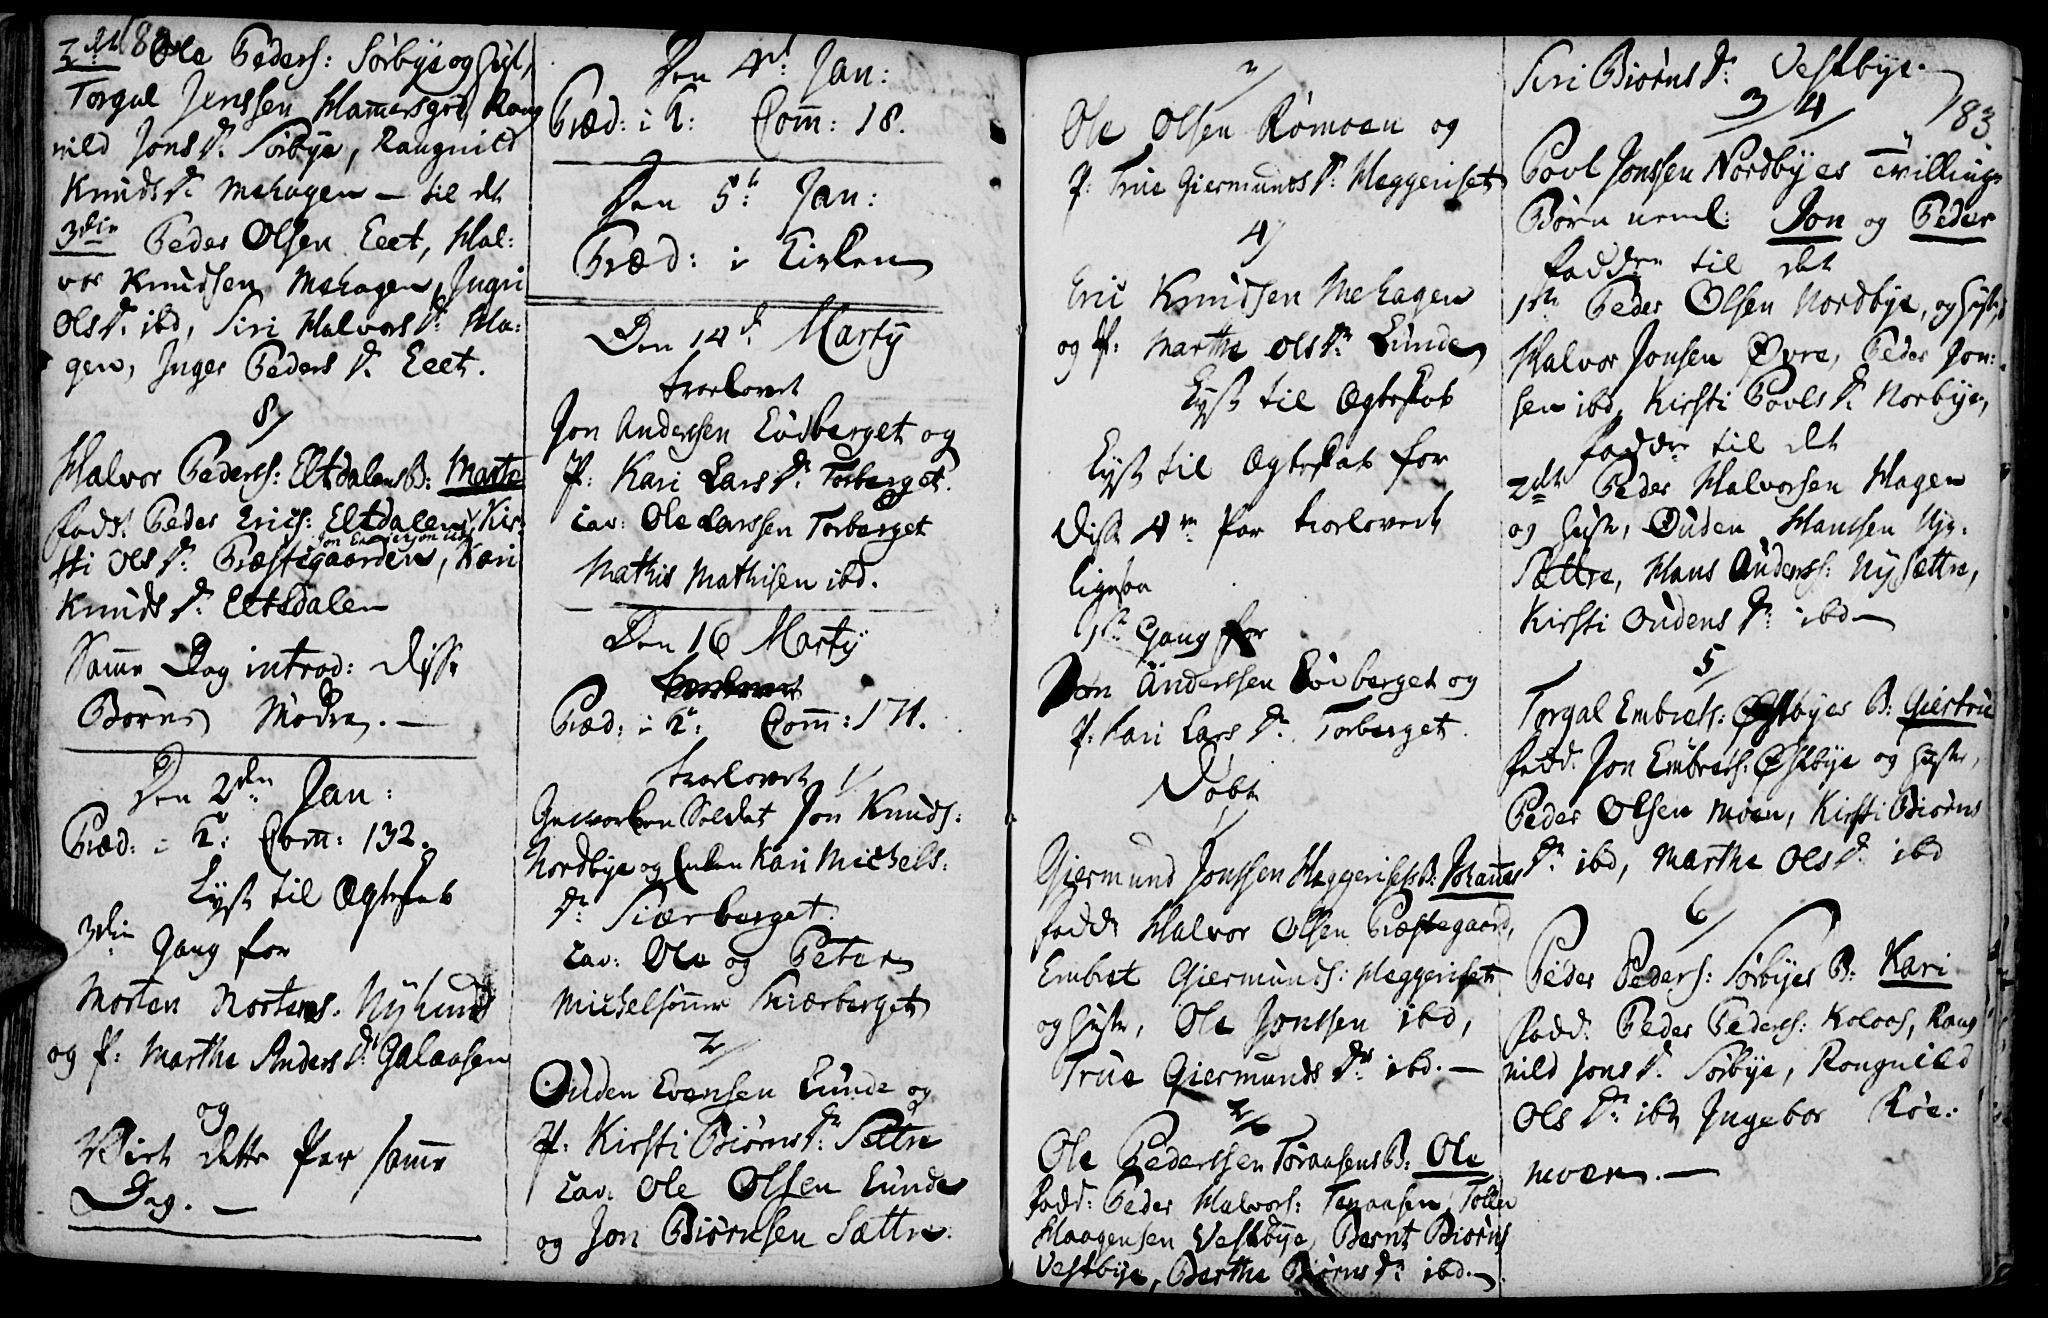 2det Ole Peders: Sørbye og Hust,
Torgal Jenssen Hamersgrd, Rang
nild Jons D: Sørbye, Rangnild
Knuds D: Mehagen – til det
3die Peder Olsen Eeet, Hal:
vor Knudsen Mehagen, Ingri
Ols D: ibd, Siri Halvors D: Ha:
gen, Inger Peders D: Eeet.
8/
Halvor Peders: Eltdalens B: Marte
fadd: Peder Erics: Eltdalen, Kir-
sti Ols D: Præstegaarden, Kari
Knuds D: Eltsdalen
Samme Dag introd: disse
Børns Mødre. –
Den 2den Jan:
Præd: i K: Com: 132.
Lyst til Ægteskab
3die Gang for
Morten Mortens. Nylund
og P: Marthe Anders D: Galaasen
og
Viet dette Par samme
Dag. –
Den 4de Jan:
Præd: i K: Com: 18.
Den 5te Jan:
Præd: i Kirken
Den 14de Martij
trolovet
Jon Anderssen Løvberget og
P: Kari Lars D: Torberget.
Cav: Ole Larssen Torberget
Mathis Mathisen ibd.
Den 16 Martij
Præd: i K: Com: 171.
trolovet 1/
Geworben Soldat Jon Knuds:
Nordbye og Enken Kari Michels:
D: Skiærberget.
Cav: Ole og Peter
Michelsønner Skiærberget
2/
Ouden Evensen Lunde og
P: Kirsti Biørns D: Sættre
Cav: Ole Olsen Lunde
og Jon Biørnsen Sættre.
3/
Ole Olsen Rømoen og
P: True Giermunds D: Heggeriset
4/
Eric Knudsen Mehagen
og P: Marthe Ols D: Lunde
Lyst til Ægteskab
Lyst til Ægteskab for
disse 4re Par trolovede
ligesaa
1ste Gang for
Jon Anderssen Løvberget og
P: Kari Lars D: Torberget.
Døbt
1/
Giermund Jonssen Heggerisets B: Johannes
fadd: Halvor Olsen Præstegaard,
Embret Giermunds: Heggeriset
og Hustr, Ole Jonssen ibd,
True Giermunds D: ibd. –
2/
Ole Pederssen Toraasens B: Ole
fadd: Peder Halvors: Toraasen, Tollev
Haagensen Vestbye, Bernt Biørns
Vestbye, Berthe Biørns D: ibd.
Siri Biørns D: Vestbye.
183
3/ 4/
Povl Jonssen Nordbyes Tvillinge
Børn neml: Jon og Peder
faddre til det
1ste Peder Olsen Nordbye, og Hustr,
Halvor Jonsen Øvre, Peder Jon:
sen ibd, Kirsti Povls D: Norbye,
faddre til det
2det Peder Halvorsen Hagen
og Hustr, Ouden Hanssen Ny-
Sættre, Hans Oudenss: Nysættre,
Kirsti Oudens D: ibd –
5/
Torgal Embrets: Østbyes B: Giertrue
fadd: Jon Embrets: Østbye og Hustr,
Peder Olsen Moen, Kirsti Biørns
D: ibd, Marthe Ols D: ibd
6/
Peder Peders: Sørbyes B: Kari
fadd: Peder Peders: Kolaas, Rang
nild Jons D: Sørbye, Rangnild
Ols D: ibd Ingebor Røe:
moen. –